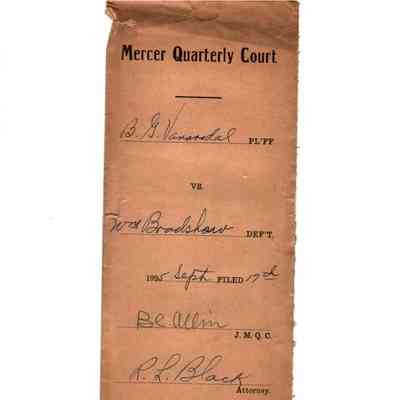 Mercer Quarterly Court
B. G. Vanarsdal PL'FF
VS.
Wm Bradshaw DEF'T.
1925 Sept FILED 17th
B.C. Allin J. M. Q. C.
R. L. Black
Attorney.